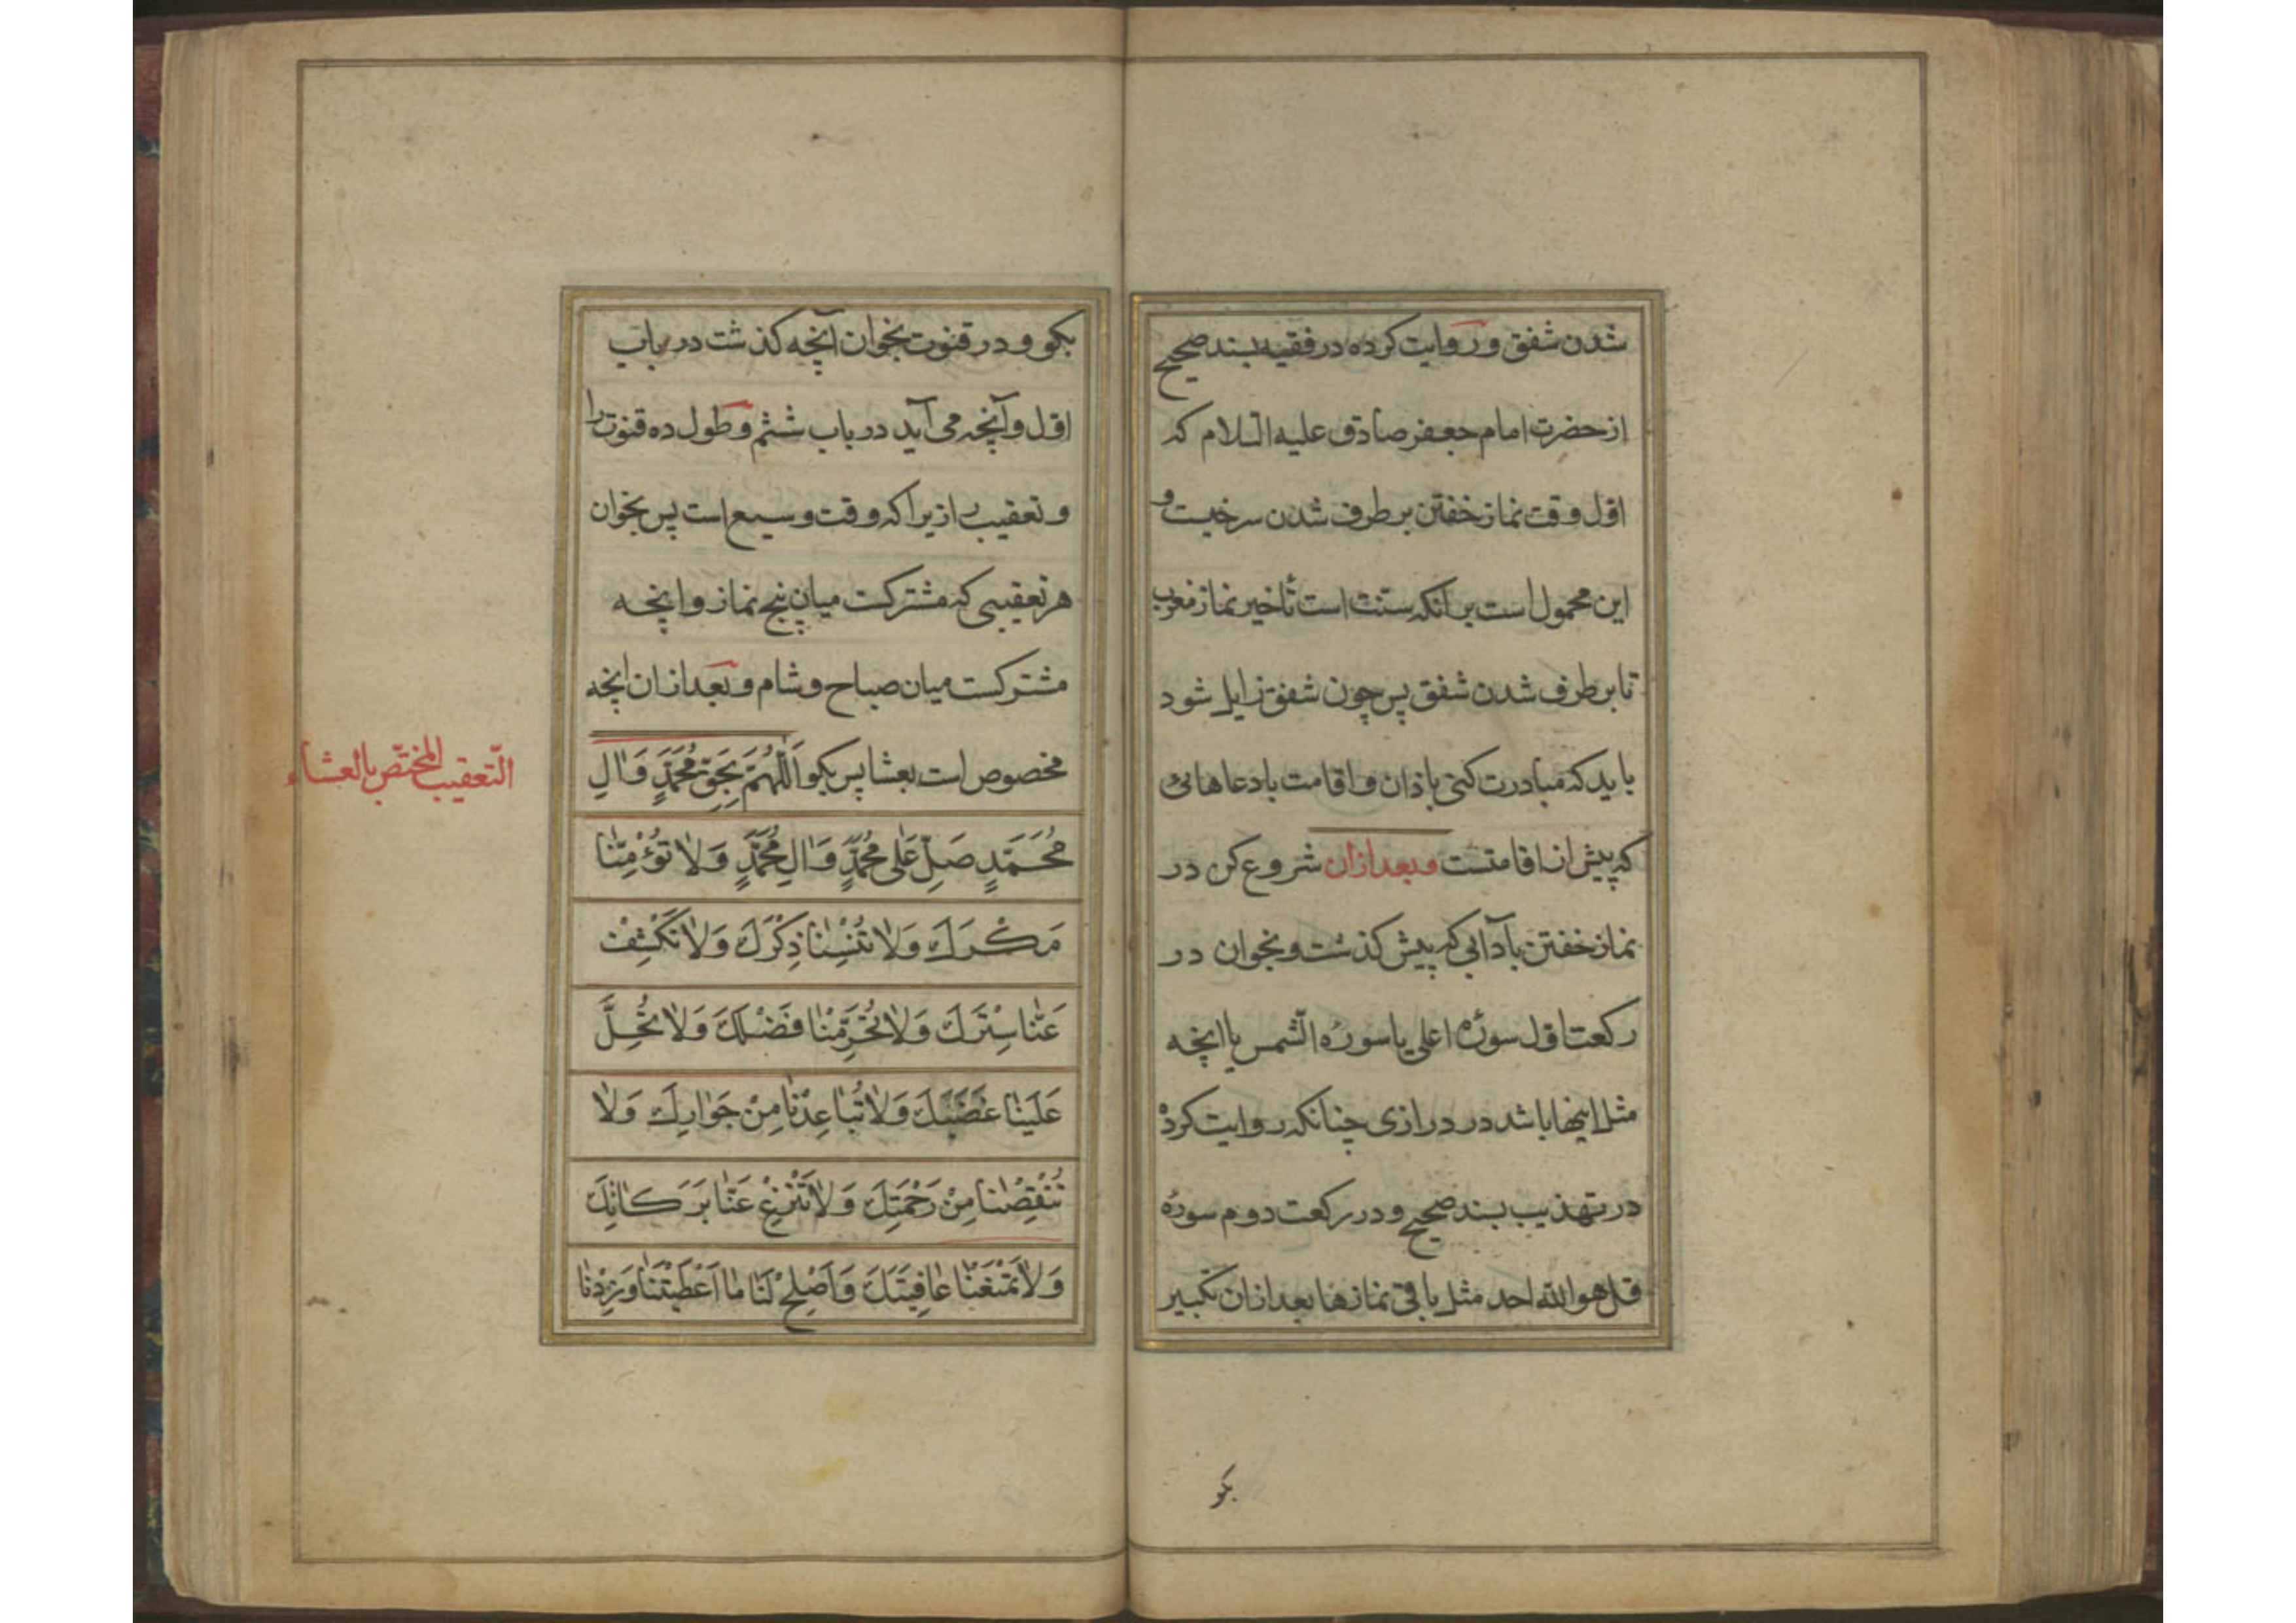 شدن شفق و روایت کرده در فقیه بسند صحیح
از حضرت امام جعفر صادق علیه السلام که
اول وقت نماز خفتن بر طرف شدن سرخیست و
این محمول است بر آنکه سنت است تأخیر نماز مغرب
تا بر طرف شدن شفق پس چون شفق زایل شود
باید که مبادرت کنی باذان و اقامت با دعاهائی
که پیش از اقامتست و بعد ازان شروع کن در
نماز خفتن بآدابی که پیش کذشت و بخوان در
رکعت اول سورهٔ اعلی یا سورهٔ الشمس یا انچه
مثل اینها باشد در درازی چنانکه روایت کرده
در تهذیب بسند صحیح و در رکعت دوم سورهٔ
قل هو الله احد مثل باقی نمازها بعد ازان تکبیر
بکو
بکو و در قنوت بخوان آنچه کذشت در باب
اول و آنچه می آید در باب ششم و طول ده قنوت را
و تعقیب را زیرا که وقت وسیع است پس بخوان
هر تعقیبی که مشترکست میان پنج نماز و انچه
مشترکست میان صباح و شام و بعد ازان انچه
مخصوص است بعشا پس بکو اَللّٰهُمَّ بِحَقِّ مُحَمَّدٍ وَاٰلِ
مُحَمَّدٍ صَلِّ عَلٰی مُحَمَّدٍ وَاٰلِ مُحَمَّدٍ وَلاٰ تُؤْمِنّٰا
مَكْرَكَ وَلاٰ تُنْسِنٰا ذِكْرَكَ وَلاٰ تَكْشِفْ
عَنّٰا سِتْرَكَ وَلاٰ تُحَرِّمْنٰا فَضْلَكَ وَلاٰ تُحِلَّ
عَلَيْنٰا غَضَبَكَ وَلاٰ تُبٰاعِدْنٰا مِنْ جَوٰارِكَ وَلاٰ
تَنْقِصْنٰا مِنْ رَحْمَتِكَ وَلاٰ تَنْزِعْ عَنّٰا بَرَكٰاتِكَ
وَلاٰ تَمْنَعْنٰا عٰافِيَتَكَ وَاَصْلِحْ لَنٰا مٰا اَعْطَيْتَنٰا وَزِدْنٰا
التّعقیب المختصّ بالعشاء